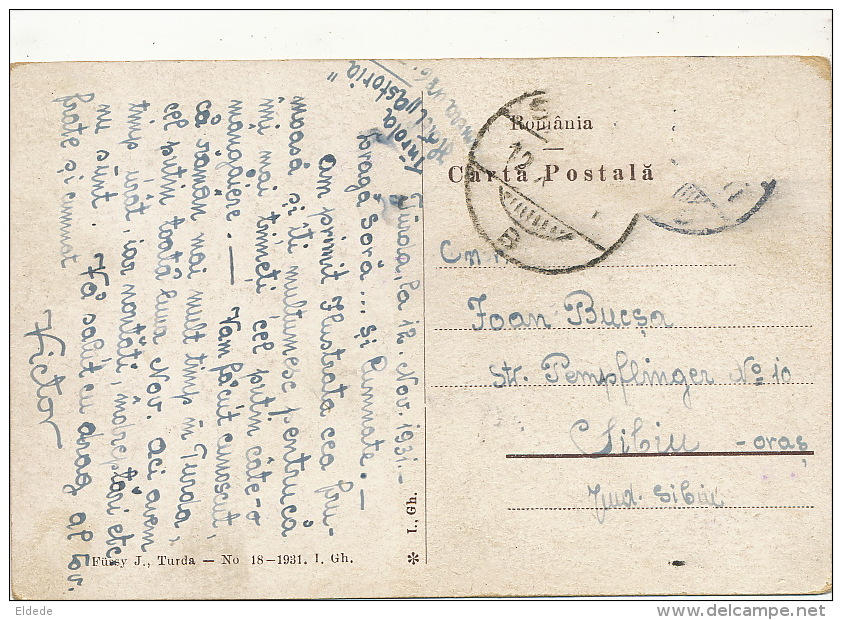 România
Carta Postală
Ioan Bucșa
Str. Pempflinger No 10
Sibiu - oraș
Jud. Sibiu
"Astoria"
Turda, la 12. Nov. 1931.-
Dragă Soră... și Cumnate.-
Am primit Ilustrata cea fru-
moasă și îți mulțumesc pentrucă
îmi mai trimeți cel puțin câte-o
mângăiere. — V'am făcut cunoscut,
că rămân mai mult timp în Turda,
cel puțin toată luna Nov. aci avem
timp urât, iar noutăți, îndreptări etc
nu sunt. Vă salut cu drag al Vov.
frate și cumnat
Victor
Füssy J., Turda — No 18—1931. I. Gh.
* I., Gh.
Eldede
delcampe.net